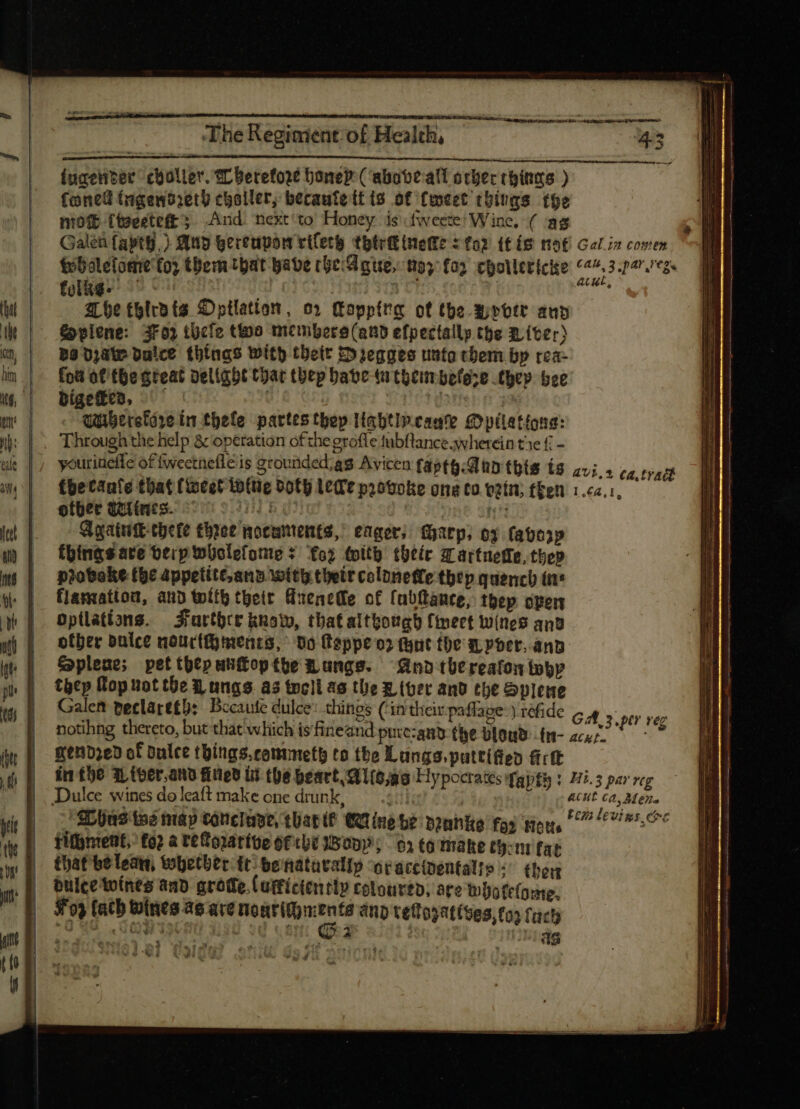 The Regiment of Health, 43
ingender choller. Therefore honey (above all other things)
soonest ingendreth choller, because it is of sweet things the
most sweetest; And next to Honey is sweete Wine, (as
Galen sayth,) And hereupon riseth thirstinesse: for it is not
wholesome for them that have the Ague, nor for chollericke
folkes.
Gal. in comen
can, 3. par. reg.
acut,
The third is Opilation, or stopping of the Lyver and
Splene: For these two members (and especially the Liver)
do draw dulce things with their Dregges unto them by rea-
son of the great delight that they have in them before they bee
digested,
Wherefore in these partes they lightly cause Opilations:
Through the help & operation of the grosse substance, wherein the f-
yourinesse of sweetnesse is grounded, as Avicen sayth. And this is
the cause that sweet wine doth lesse provoke one to vrin, then
other Wines.
avi, 2 ca, tract
1. ca, 1,
Against these three nocuments, eager, sharp, or savory
things are very wholesome: for with their Tartnesse, they
provoke the appetite, and with their coldnesse they quench in-
flamation, and with their finenesse of substance, they open
opilations. Further know, that although sweet wines and
other dulce nourishments, do stoppe or shut the Lyver, and
Splene; yet they unstop the Lungs. And the reason why
they stop not the Lungs as well as the Liver and the Splene
Galen declareth: Because dulce things (in their passage) reside
notihng thereto, but that which is fine and pure: and the bloud in-
gendred of dulce things, commeth to the Lungs, puttified first
in the Liver, and fined in the heart, Also, as Hypocrates sayth:
Dulce wines do least make one drunk,
Gal, 3. per reg
acut.
Hi. 3 par reg
acut ca, Mena
tem levius, &c
Thus we may conclude, that if Wine be drunke for nou-
rishment, for a restorative of the Body, or to make them fat
that be lean, whether it be naturally or accidentally; then
dulce wines and grosse, sufficiently coloured, are wholesome.
For such wines as are nourishments and restoratives, for such
G 2 as